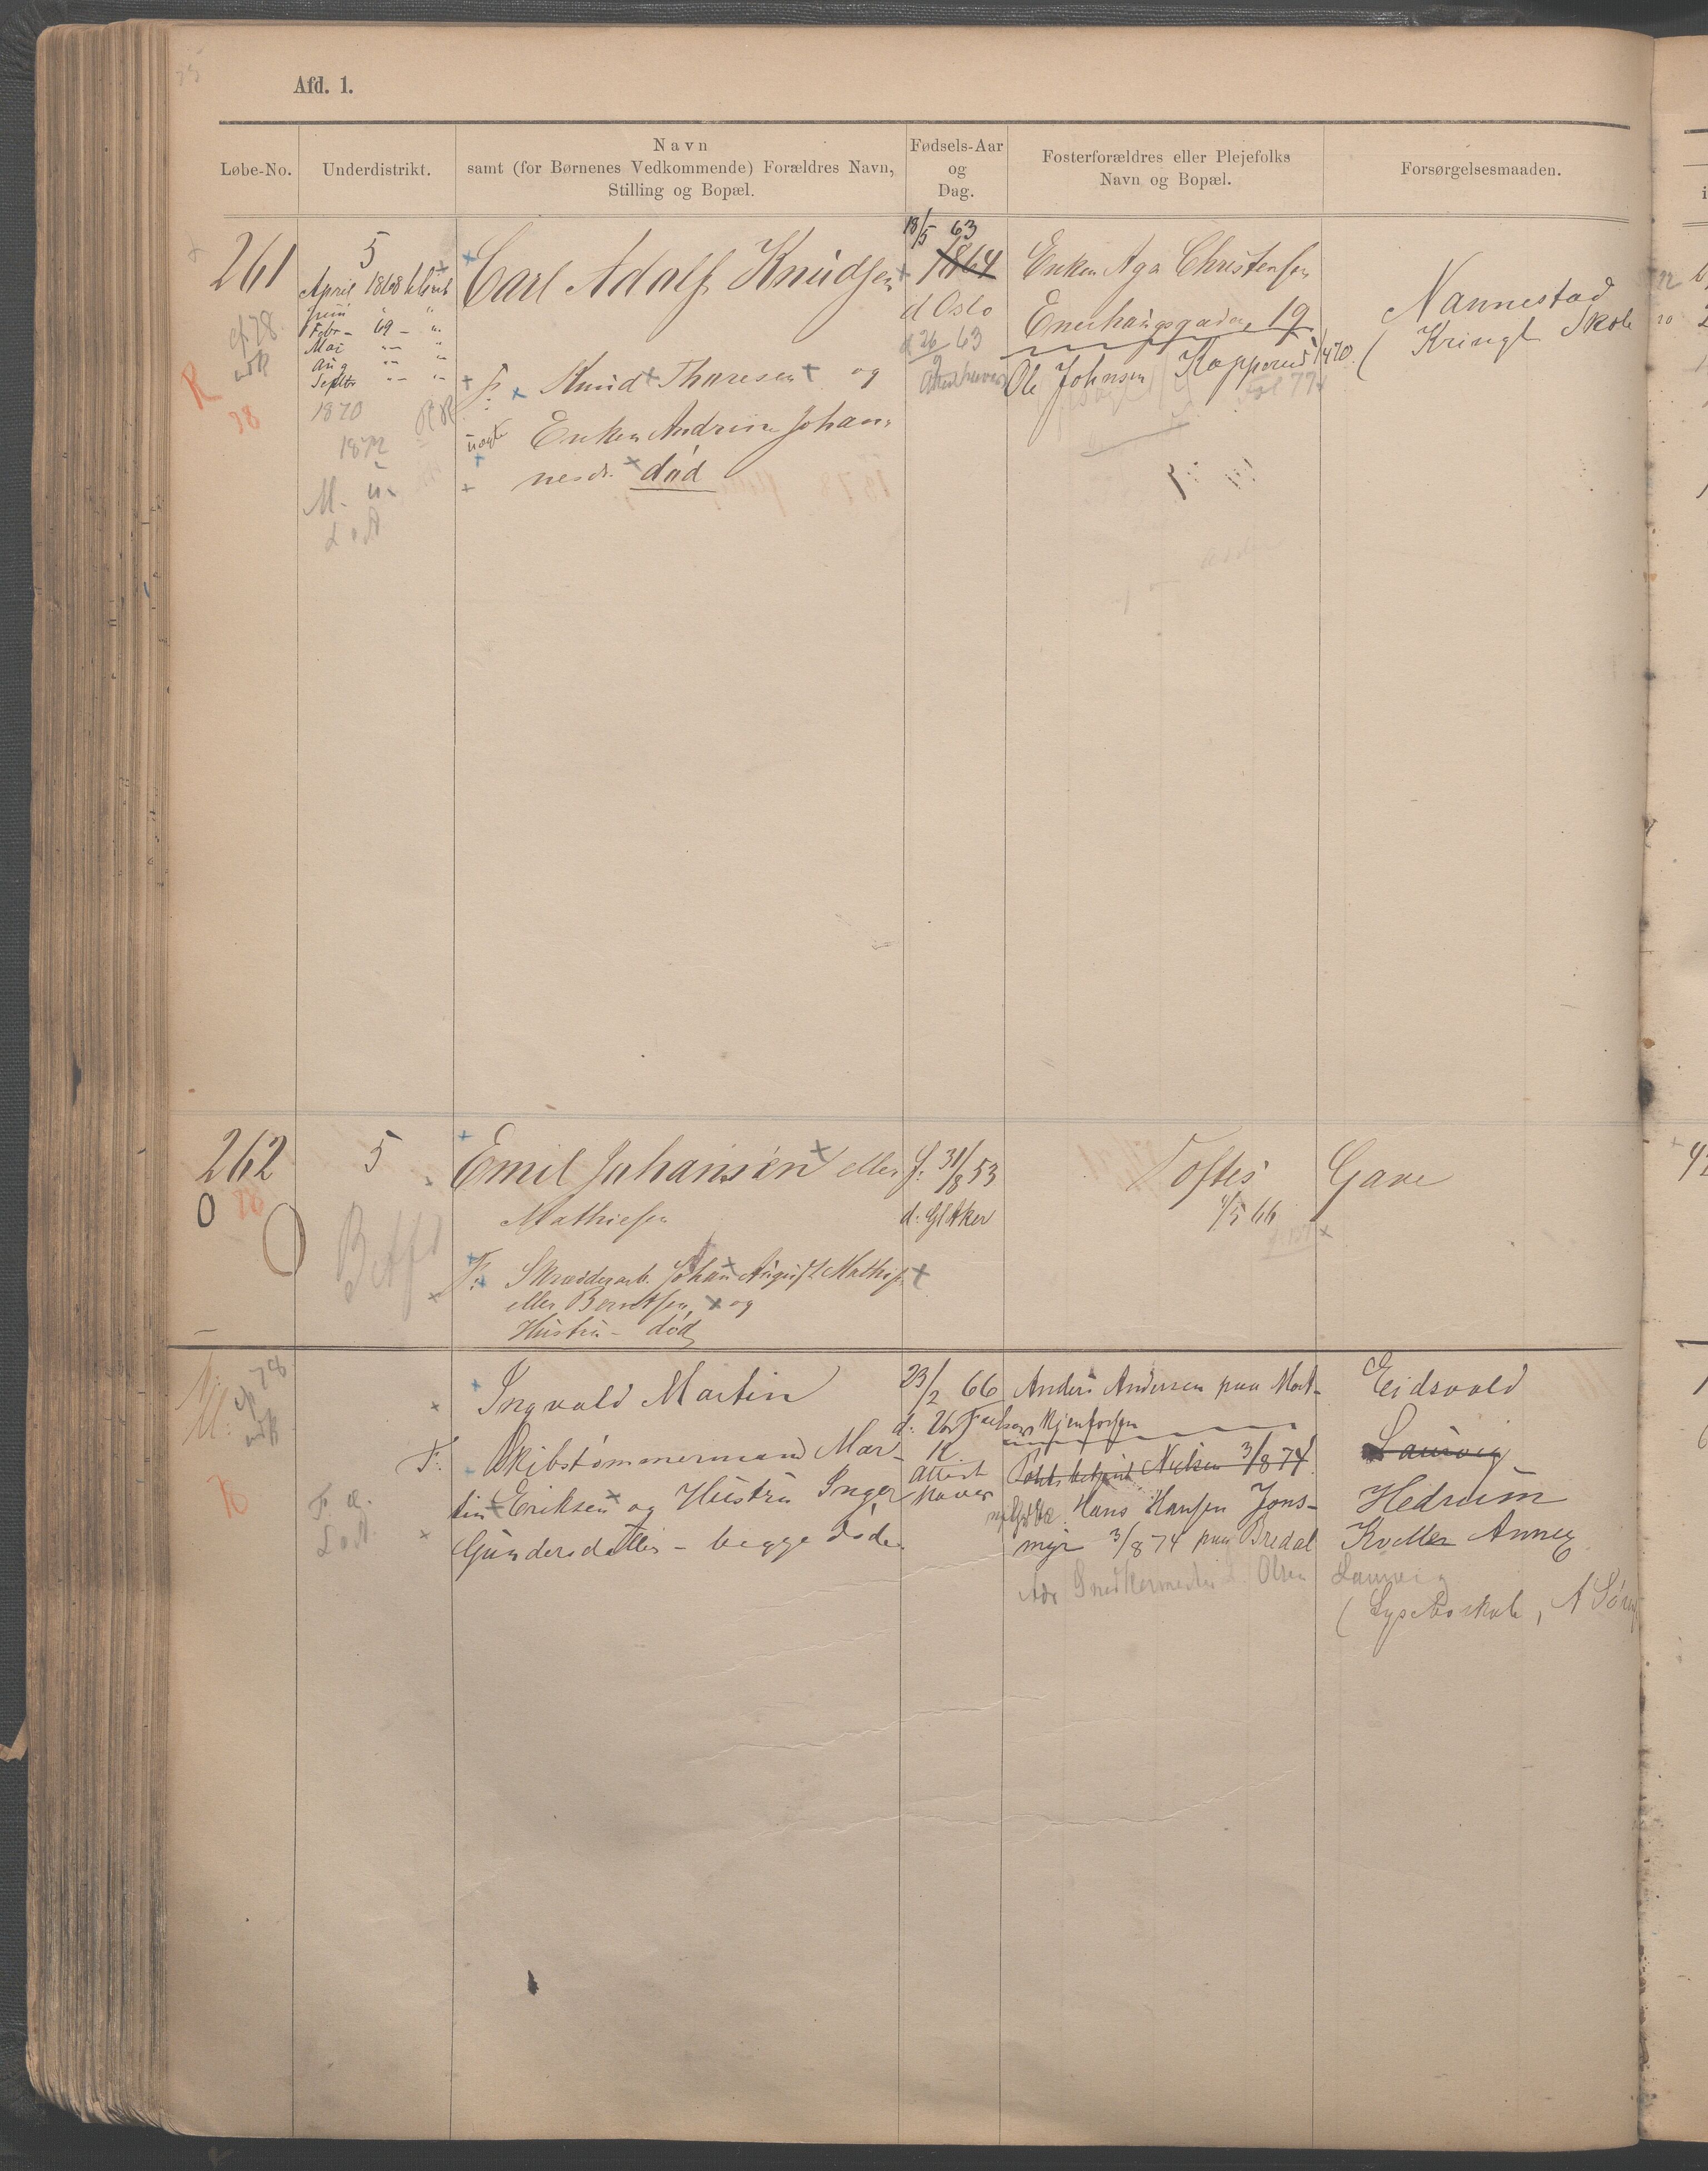 Afd. 1.
Løbe-No.
Underdistrikt.
Navn
samt (for Børnenes Vedkommende) Forældres Navn,
Stilling og Bopæl.
Fødsels-Aar
og
Dag.
Fosterforældres eller Plejefolks
Navn og Bopæl.
Forsørgelsesmaaden.
261
cf 78
R
78
5
April 1868
Juni " "
Febr - 69 - "
Mai
Aug
Septbr
1870
1872
M. u.
Carl Adolf Knudsen
F: Knud Thoresen og
Enken Andrine Johan-
nesdr. død
18/5 63
1864
d Oslo
d 26/9 63
Enken Aga Christensen
Enerhaugsgaden 19
Ole Johnsen Kopperud
Nannestad
( Kringl Skole
262
0
78
5
Emil Johansen eller
Mathiesen
F: Skrædderarb. Johan August Mathis.
eller Berntsen, og
Hustru - død
f: 31/8 53
d: Gl Aker
Toftes
1/5 66
Gave
cf 78
78
Ingvald Martin
F: Skibstømmermand Mar-
tin Eriksen og Hustru Inger
Gundersdatter - begge døde
23/2 66
d: Vor Frelsers
K
Attest
haves
Anders Andersen paa
3/8 74
Hans Hansen Jons-
myr 3/8 74 paa Bredal
Snedkermester Olsen
Eidsvold
Laurvig
Hedrum
Kvelle Annex
Laurvig